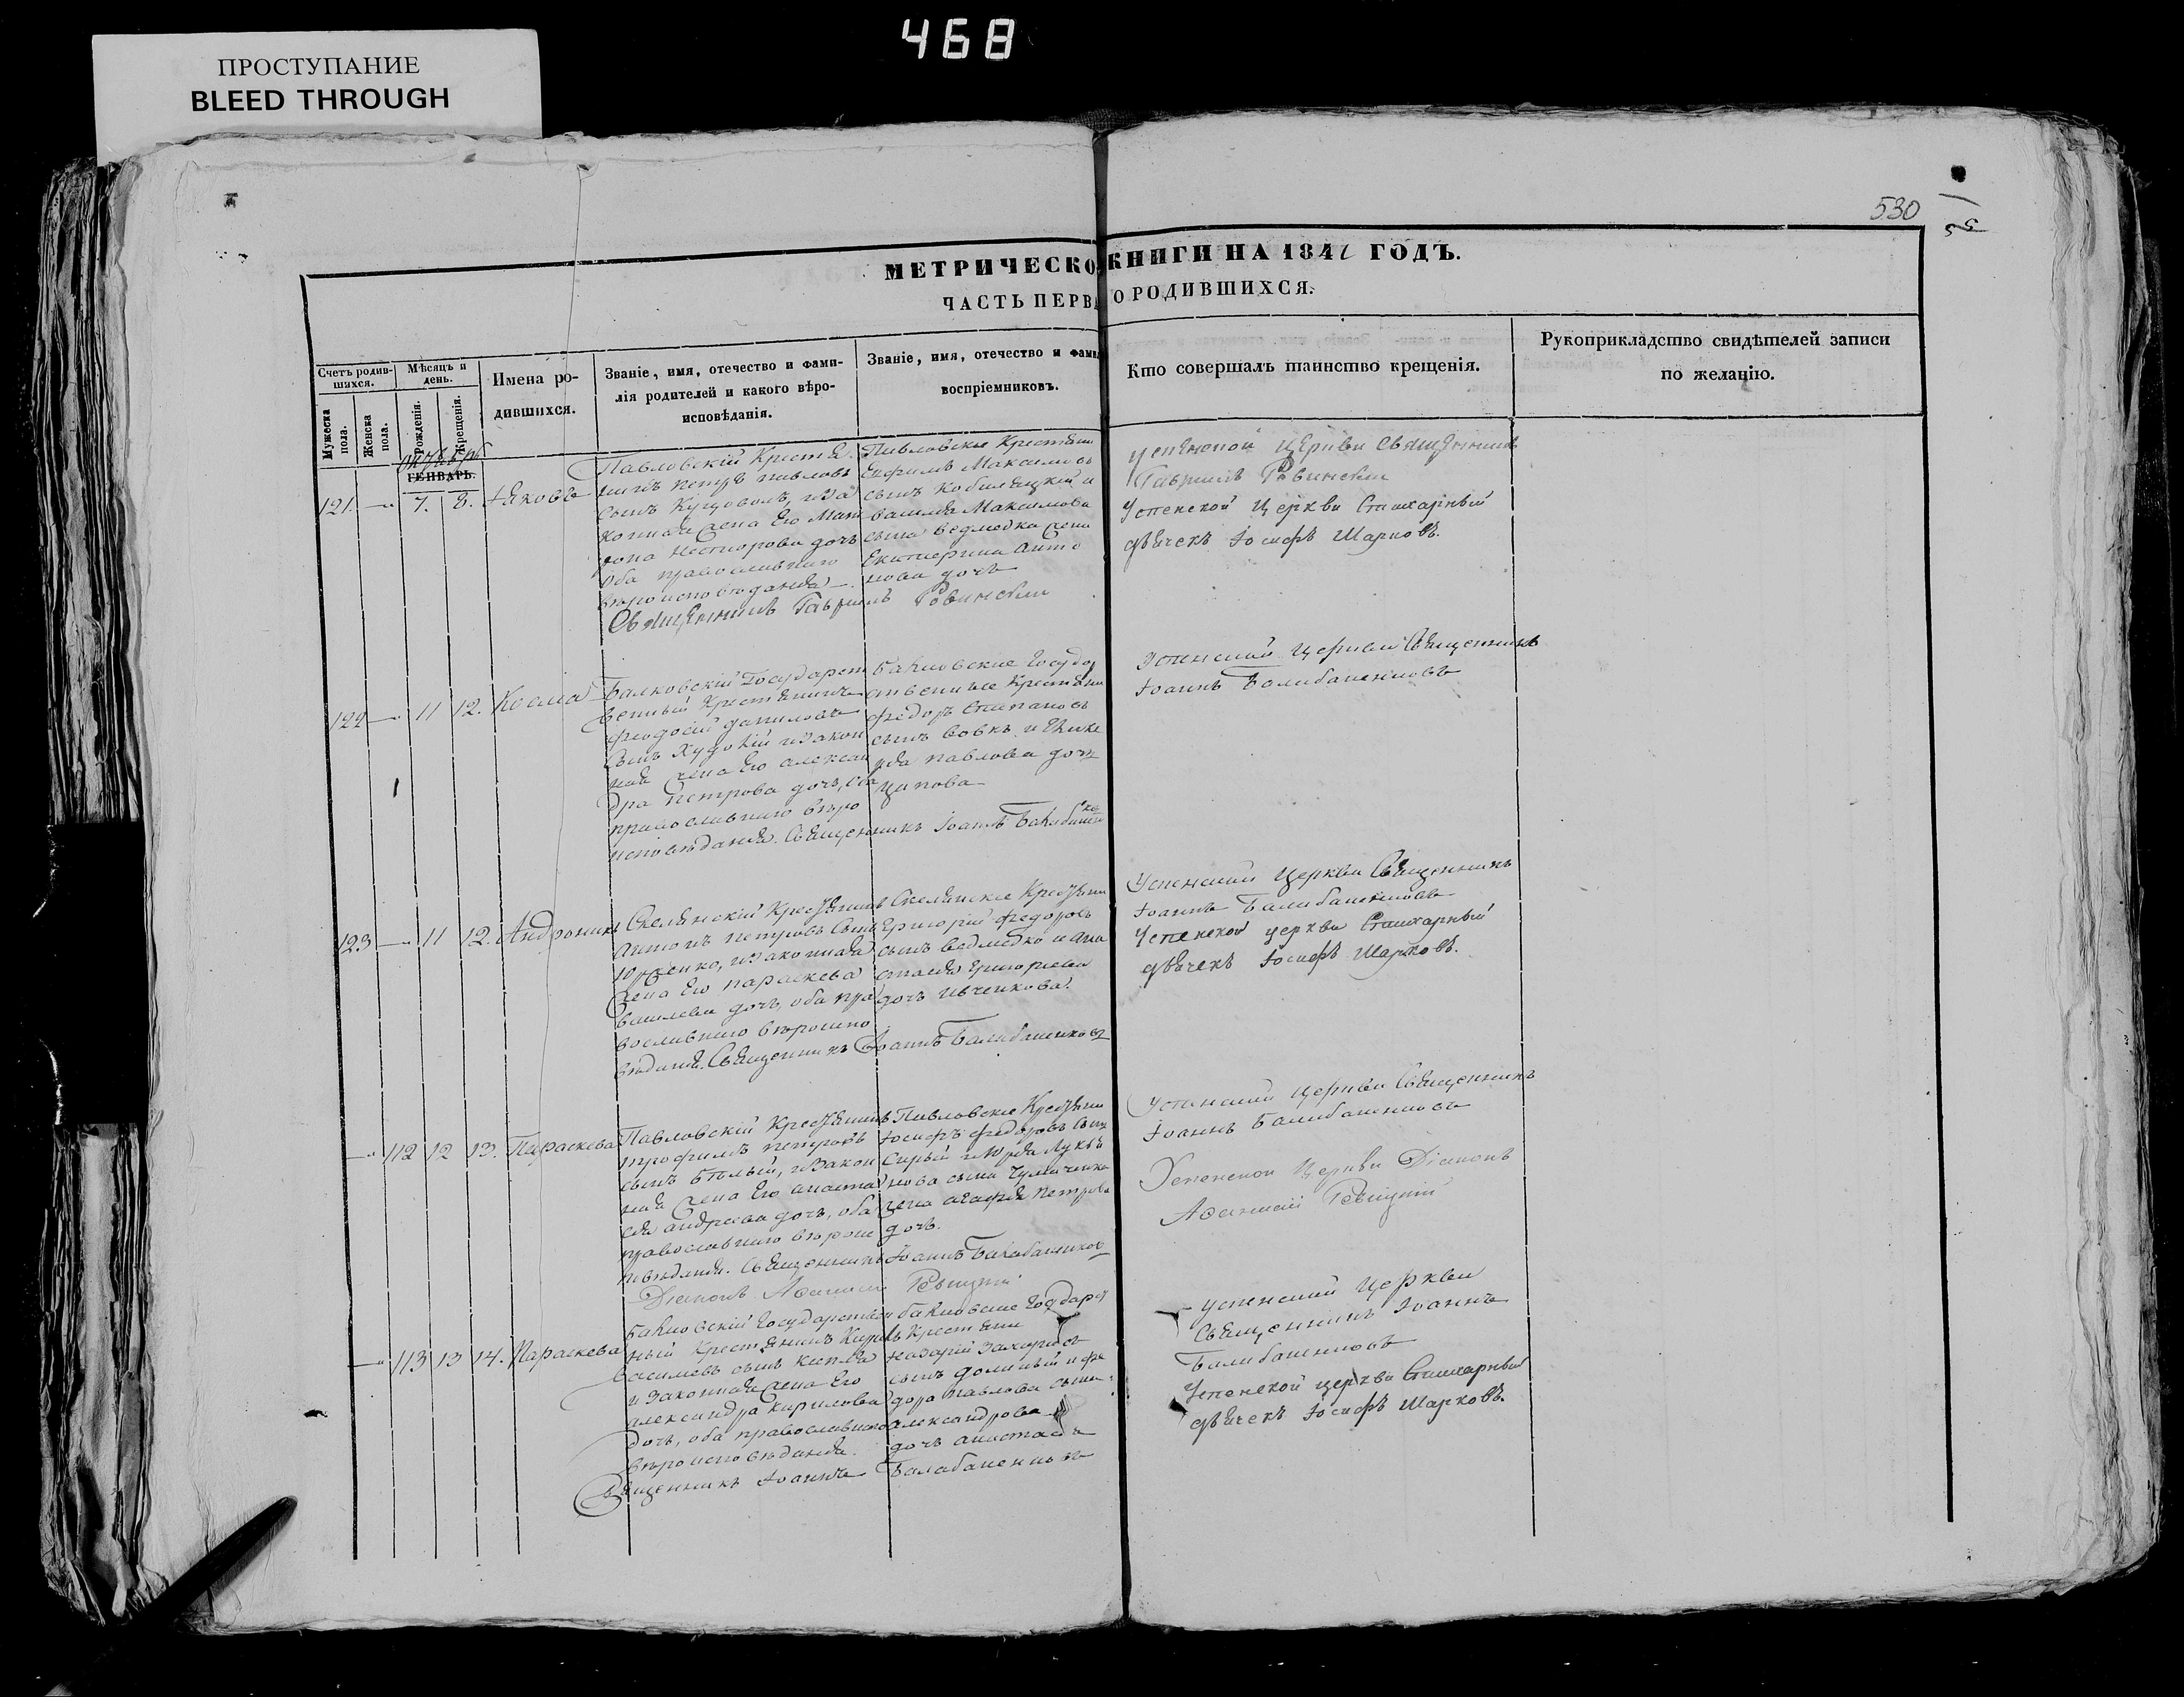 468
ПРОСТУПАНИЕ
BLEED THROUGH
530
МЕТРИЧЕСКО КНИГИ НА 1841 ГОДЪ.
ЧАСТЬ ПЕРВА О РОДИВШИХСЯ.
Счетъ родившихся.
Мужеска пола.
Женска пола.
Мѣсяцъ и день.
Рожденія.
Крещенія.
Имена родившихся.
Званіе, имя, отечество и фамилія родителей и какого вѣроисповѣданія.
Званіе, имя, отечество и фами
воспріемниковъ.
Кто совершалъ таинство крещенія.
Рукоприкладство свидѣтелей записи
по желанію.
ГЕНВАРЬ.
121. — 7. 8. Іаковъ
Павловскій Крестя
нинъ Петръ Павловъ
сынъ
конная жена Его Мат
рона Несторова дочь
оба православнаго
вѣроисповѣданія
Священникъ Гавріилъ Ровинскій
Павловскіе Крестяни
Ефимъ Максимовъ
сынъ Кобиляцкій и
василія Максимова
сына ведмедка жена
Екатерина Анто
нова дочь
Успенской Церкви Священникъ
Гавріилъ Ровинскій
Успенской Церкви Стихарный
дьячекъ Іосифъ Шарковъ.
122 — 11 12. Косма
Балковскій Государст
венный Крестянинъ
Феодосій Даниловъ
сынъ Худокій и Закон
ная жена Его Алексан
дра Петрова дочь, оба
православнаго вѣро
исповѣданія. Священникъ Іоаннъ
Балковские Государ
ственные Крестяни
Федоръ Степановъ
сынъ Вовкъ и
Павлова дочь
Успенской Церкви Священникъ
Іоаннъ Балабаненковъ
123 — 11 12. Андроникъ
Скелянскій Крестянинъ
Антонъ Петровъ Сынъ
Юрченко, и Законная
жена Его Параскева
василева дочь, оба пра
вославнаго вѣроиспо
вѣданія. Священникъ Іоаннъ Балабаненковъ
Скелянские Крестяни
Григорій Федоровъ
сынъ Ведмедко и Ана
стасія Григориева
дочь Ивченкова.
Успенской Церкви Священникъ
Іоаннъ Балабаненковъ
Успенской Церкви Стихарный
дьячекъ Іосифъ Шарковъ.
— 112 12 13. Параскева
Павловскій Крестянинъ
Трофимъ Петровъ
сынъ Бѣлый, и Закон
ная жена Его Анаста
сія Андреева дочь, оба
православнаго вѣроис
повѣданія. Священникъ Іоаннъ Балабаненковъ
Діаконъ
Павловские Крестяни
Іосифъ Федоровъ сынъ
Сирый
нова сына Чумаченка
жена Агафія Петрова
дочь.
Успенской Церкви Священникъ
Іоаннъ Балабаненковъ
Успенской Церкви Діаконъ
— 113 13 14. Параскева
Балковскій Государствен
ный Крестянинъ Кирилъ
Василевъ сынъ
и Законная жена Его
Александра Кирилова
дочь, оба православнаго
вѣроисповѣданія.
Священникъ Іоаннъ Балабаненковъ
Балковские Государст
Крестяни
Назарій Захаріевъ
сынъ Долиный и Фе
дора Павлова сына
Александрова
дочь Анастасія
Успенской Церкви
Священникъ Іоаннъ
Балабаненковъ
Успенской Церкви Стихарный
дьячекъ Іосифъ Шарковъ.